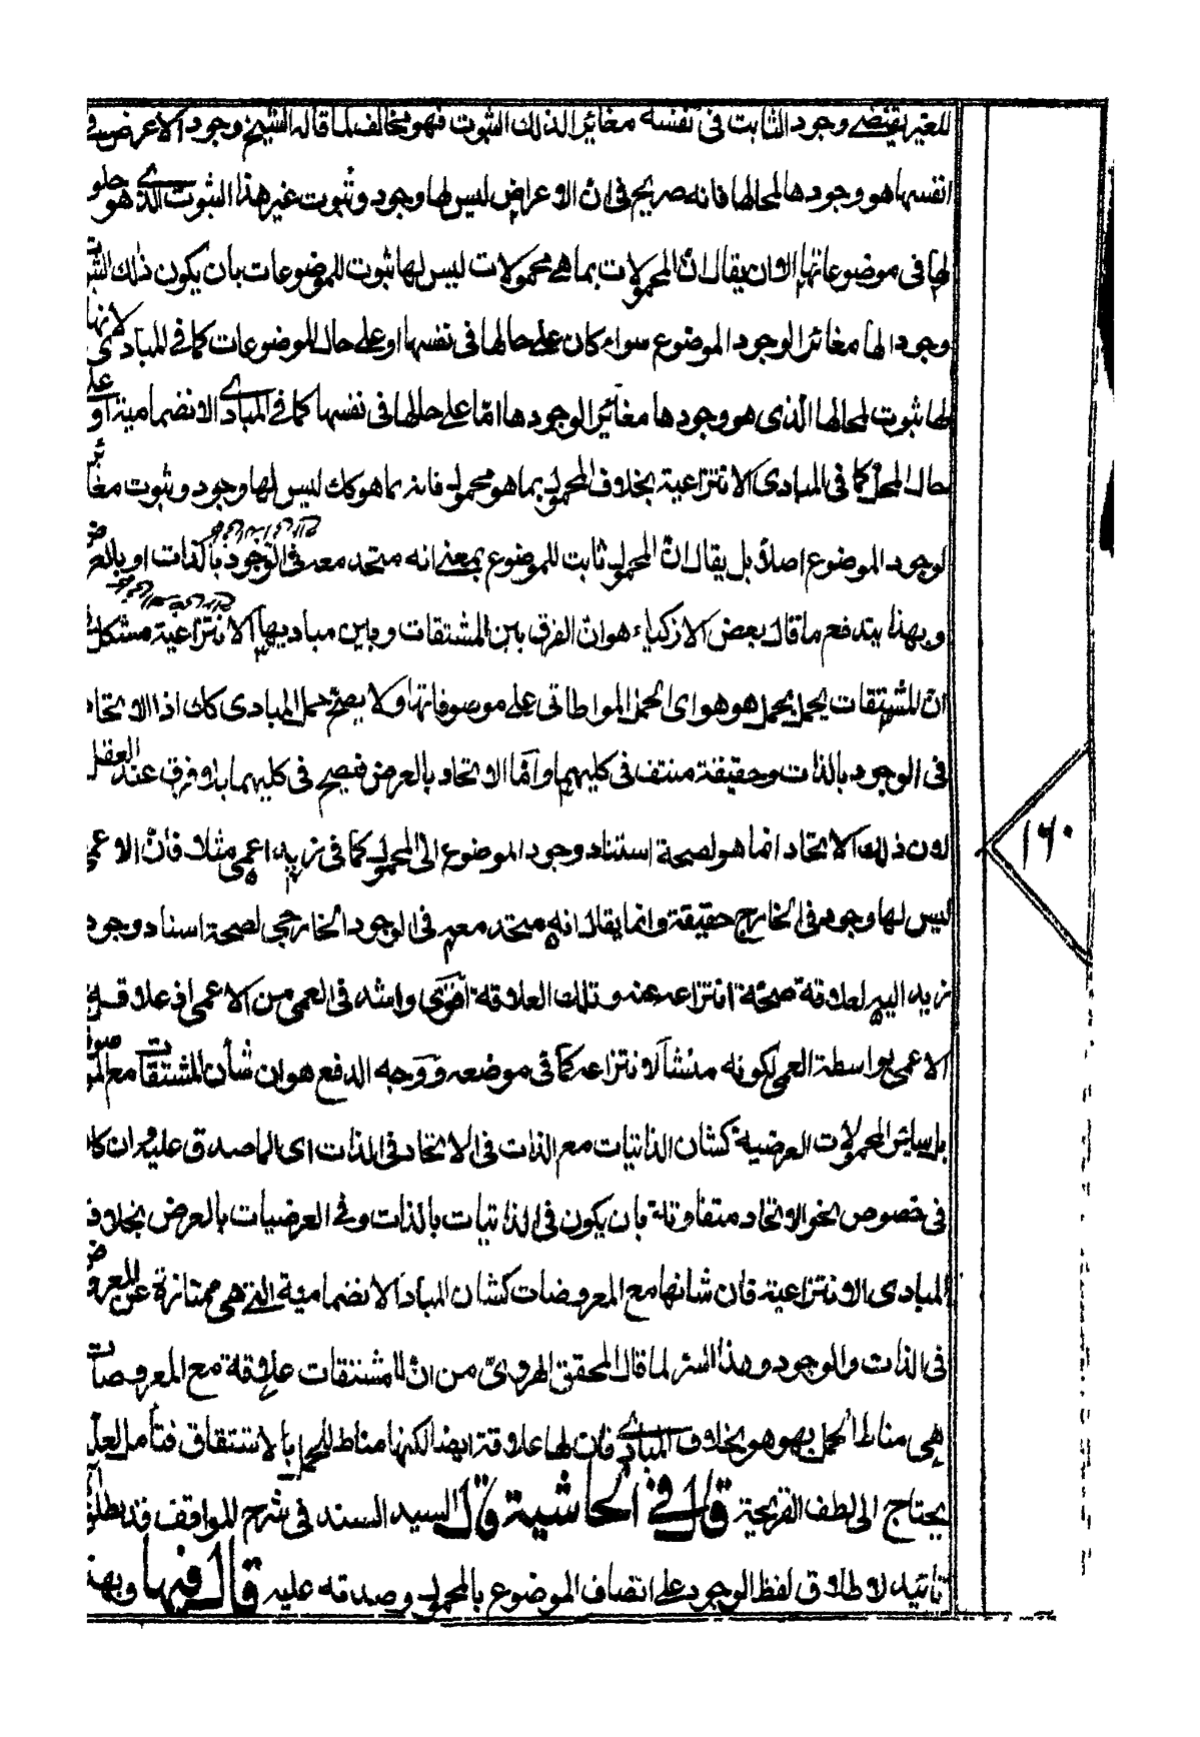 للغير يقتضى وجود الثابت فى نفسه مغائرا لذلك الثبوت فهو مخالف لما قاله الشيخ وجود الاعراض فى
انفسها هو وجودها لمحالها فانه صريح فى ان الاعراض ليس لها وجود وثبوت غير هذا الثبوت الذى هو حلو
لها فى موضوعاتها الا ان يقال ان المحمولات بما هى محمولات ليس لها ثبوت للموضوعات بان يكون ذلك الثبوت
وجودا لها مغائر الوجود الموضوع سواء كان على حالها فى نفسها او على حال الموضوعات كما فى المبادى لانها
لها ثبوت لمحالها الذى هو وجودها مغائر الوجودها امّا على حالها فى نفسها كما فى المبادى الانضمامية او على
حال المحل كما فى المبادى الانتزاعية بخلاف المحمول بما هو محمول فانه بما هو كك ليس لها وجود وثبوت مغائر
لوجود الموضوع اصلا بل يقال ان المحمول ثابت للموضوع بمعنى انه متحد معه فى الوجود بالذات او بالعرض
وبهذا يندفع ما قال بعض الازكياء هو ان الفرق بين المشتقات وبين مباديها الانتزاعية مشكل
ان المشتقات يحمل بحمل هو هو اى الحمل المواطاتى على موصوفاتها ولا يصح حمل المبادى كك اذ الاتحاد
فى الوجود بالذات وحقيقة منتف فى كليهما وامّا الاتحاد بالعرض فيصح فى كليهما بلا فرق عند العقل
لان ذلك الاتحاد انما هو لصحة استناد وجود الموضوع الى المحمول كما فى زيد اعمى مثلا فان الاعمى
ليس لها وجود فى الخارج حقيقة وانما يقال انه متحد معه فى الوجود الخارجى لصحة اسناد وجود
زيد اليه لعلاقة صحة انتزاعه عنه وتلك العلاقة اقوى واشد فى العمى من الاعمى اذ علاقة
الاعمى بواسطة العمى لكونه منشأ لانتزاعه كما فى موضعه ووجه الدفع هو ان شأن المشتقات مع الموصو
بل سائر المحمولات العرضية كشان الذاتيات مع الذات فى الاتحاد فى الذات اى الماصدق عليه وان كا
فى خصوص نحو الاتحاد متفاوتة بان يكون فى الذاتيات بالذات وفى العرضيات بالعرض بخلاف
المبادى الانتزاعية فان شانها مع المعروضات كشان المبادى الانضمامية التى هى ممتازة عن المعروض
فى الذات والوجود وهذا السر لما قال المحقق الهروىّ من ان للمشتقات علاقة مع المعروضات
هى مناط الحمل بهو هو بخلاف المبادى فان لها علاقة ايضا لكنها مناط للحمل بالاشتقاق فتأمل لعله
يحتاج الى لطف القريحة قال فى الحاشية قال السيد السند فى شرح المواقف قد يطلق
تائيد لاطلاق لفظ الوجود على اتصاف الموضوع بالمحمول وصدقه عليه قال فيها وبهذ
١٦٠